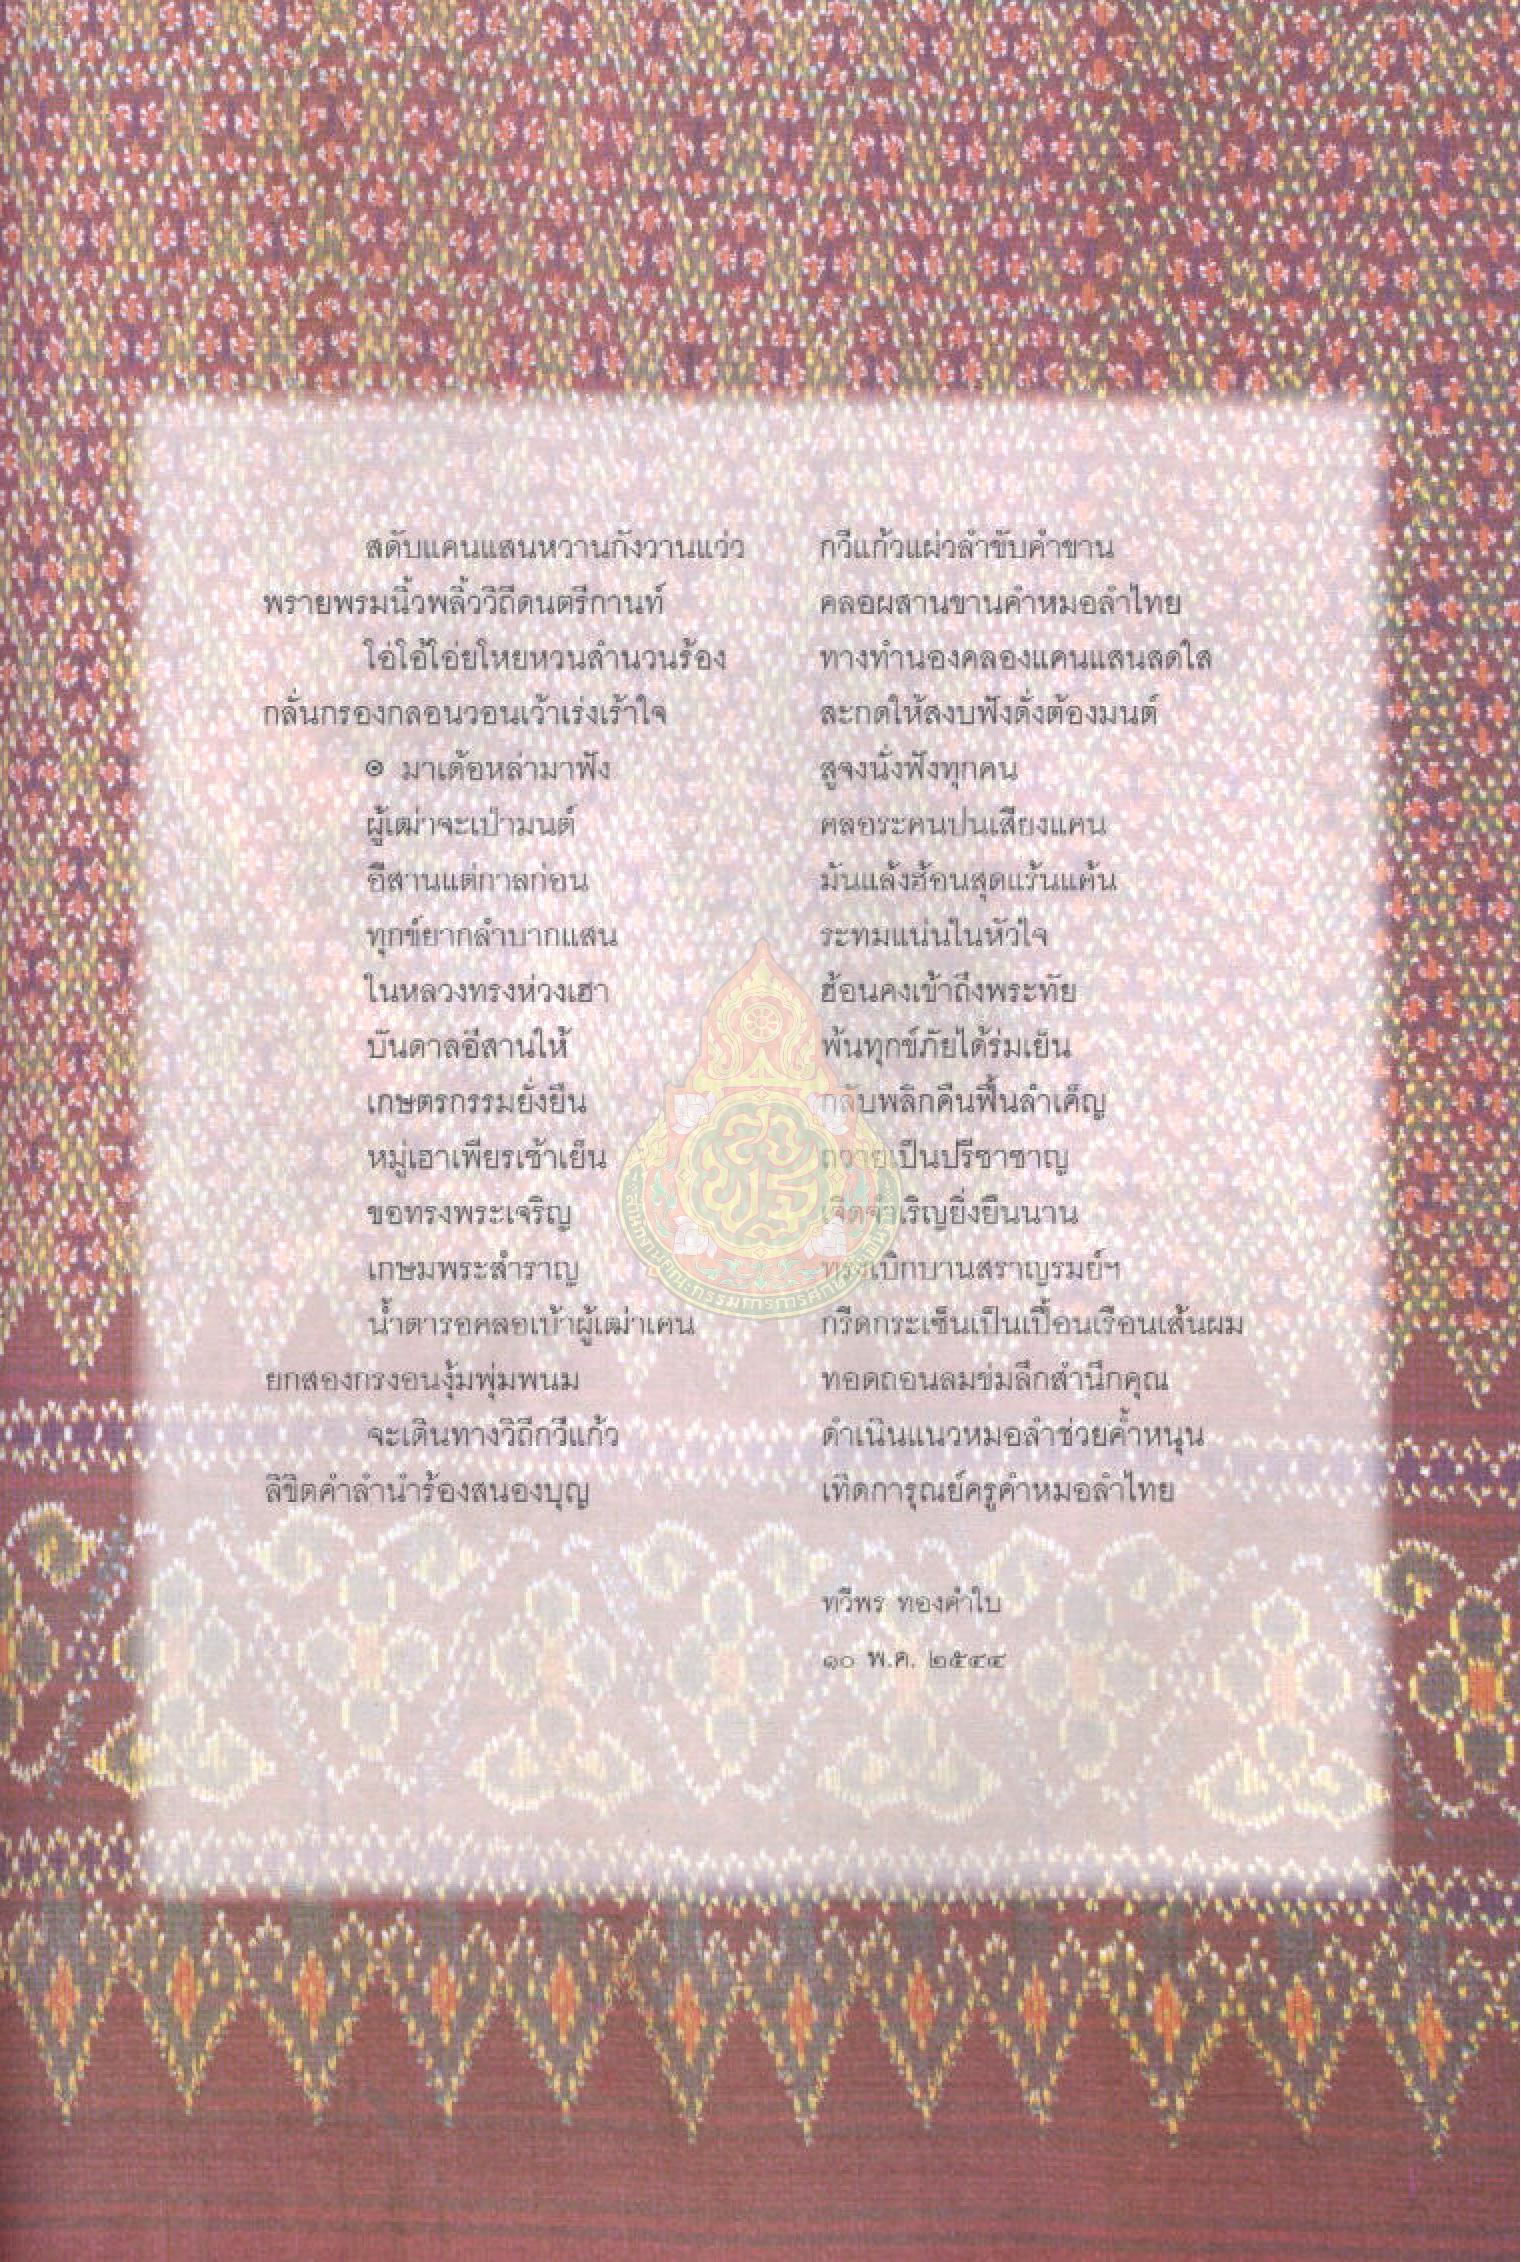 สดับแคนแสนหวานกังวานแว่ว กวีแก้วแผ่วลำขับคำขาน
พรายพรมนิ้วพลิ้ววิถีดนตรีกานท์ คลอผสานขานคำหมอลำไทย
โอ่โอ้โอ่ยโหยหวนสำนวนร้อง ทางทำนองคลองแคนแสนสดใส
กลั่นกรองกลอนวอนเว้าเร่งเร้าใจ สะกดให้สงบฟังดั่งต้องมนต์
๏ มาเด้อหล่ามาฟัง สูจงนั่งฟังทุกคน
ผู้เฒ่าจะเป่ามนต์ คลอระคนปนเสียงแคน
อีสานแต่กาลก่อน มันแล้งฮ้อนสุดแร้นแค้น
ทุกข์ยากลำบากแสน ระทมแน่นในหัวใจ
ในหลวงทรงห่วงเฮา ฮ้อนคงเข้าถึงพระทัย
บันดาลอีสานให้ พ้นทุกข์ภัยได้ร่มเย็น
เกษตรกรรมยั่งยืน กลับพลิกคืนฟื้นลำเค็ญ
หมู่เฮาเพียรเช้าเย็น ถวายเป็นปรีชาชาญ
ขอทรงพระเจริญ เจิดจำเริญยิ่งยืนนาน
เกษมพระสำราญ ทรงเบิกบานสราญรมย์ฯ
น้ำตารอคลอเบ้าผู้เฒ่าเคน กรีดกระเซ็นเป็นเปื้อนเรือนเส้นผม
ยกสองกรงอนงุ้มพุ่มพนม ทอดถอนลมข่มลึกสำนึกคุณ
จะเดินทางวิถีกวีแก้ว ดำเนินแนวหมอลำช่วยค้ำหนุน
ลิขิตคำลำนำร้องสนองบุญ เทิดการุณย์ครูคำหมอลำไทย
ทวีพร ทองคำใบ
๑๐ พ.ค. ๒๕๔๔
สำนักงานคณะกรรมการการศึกษาขั้นพื้นฐาน